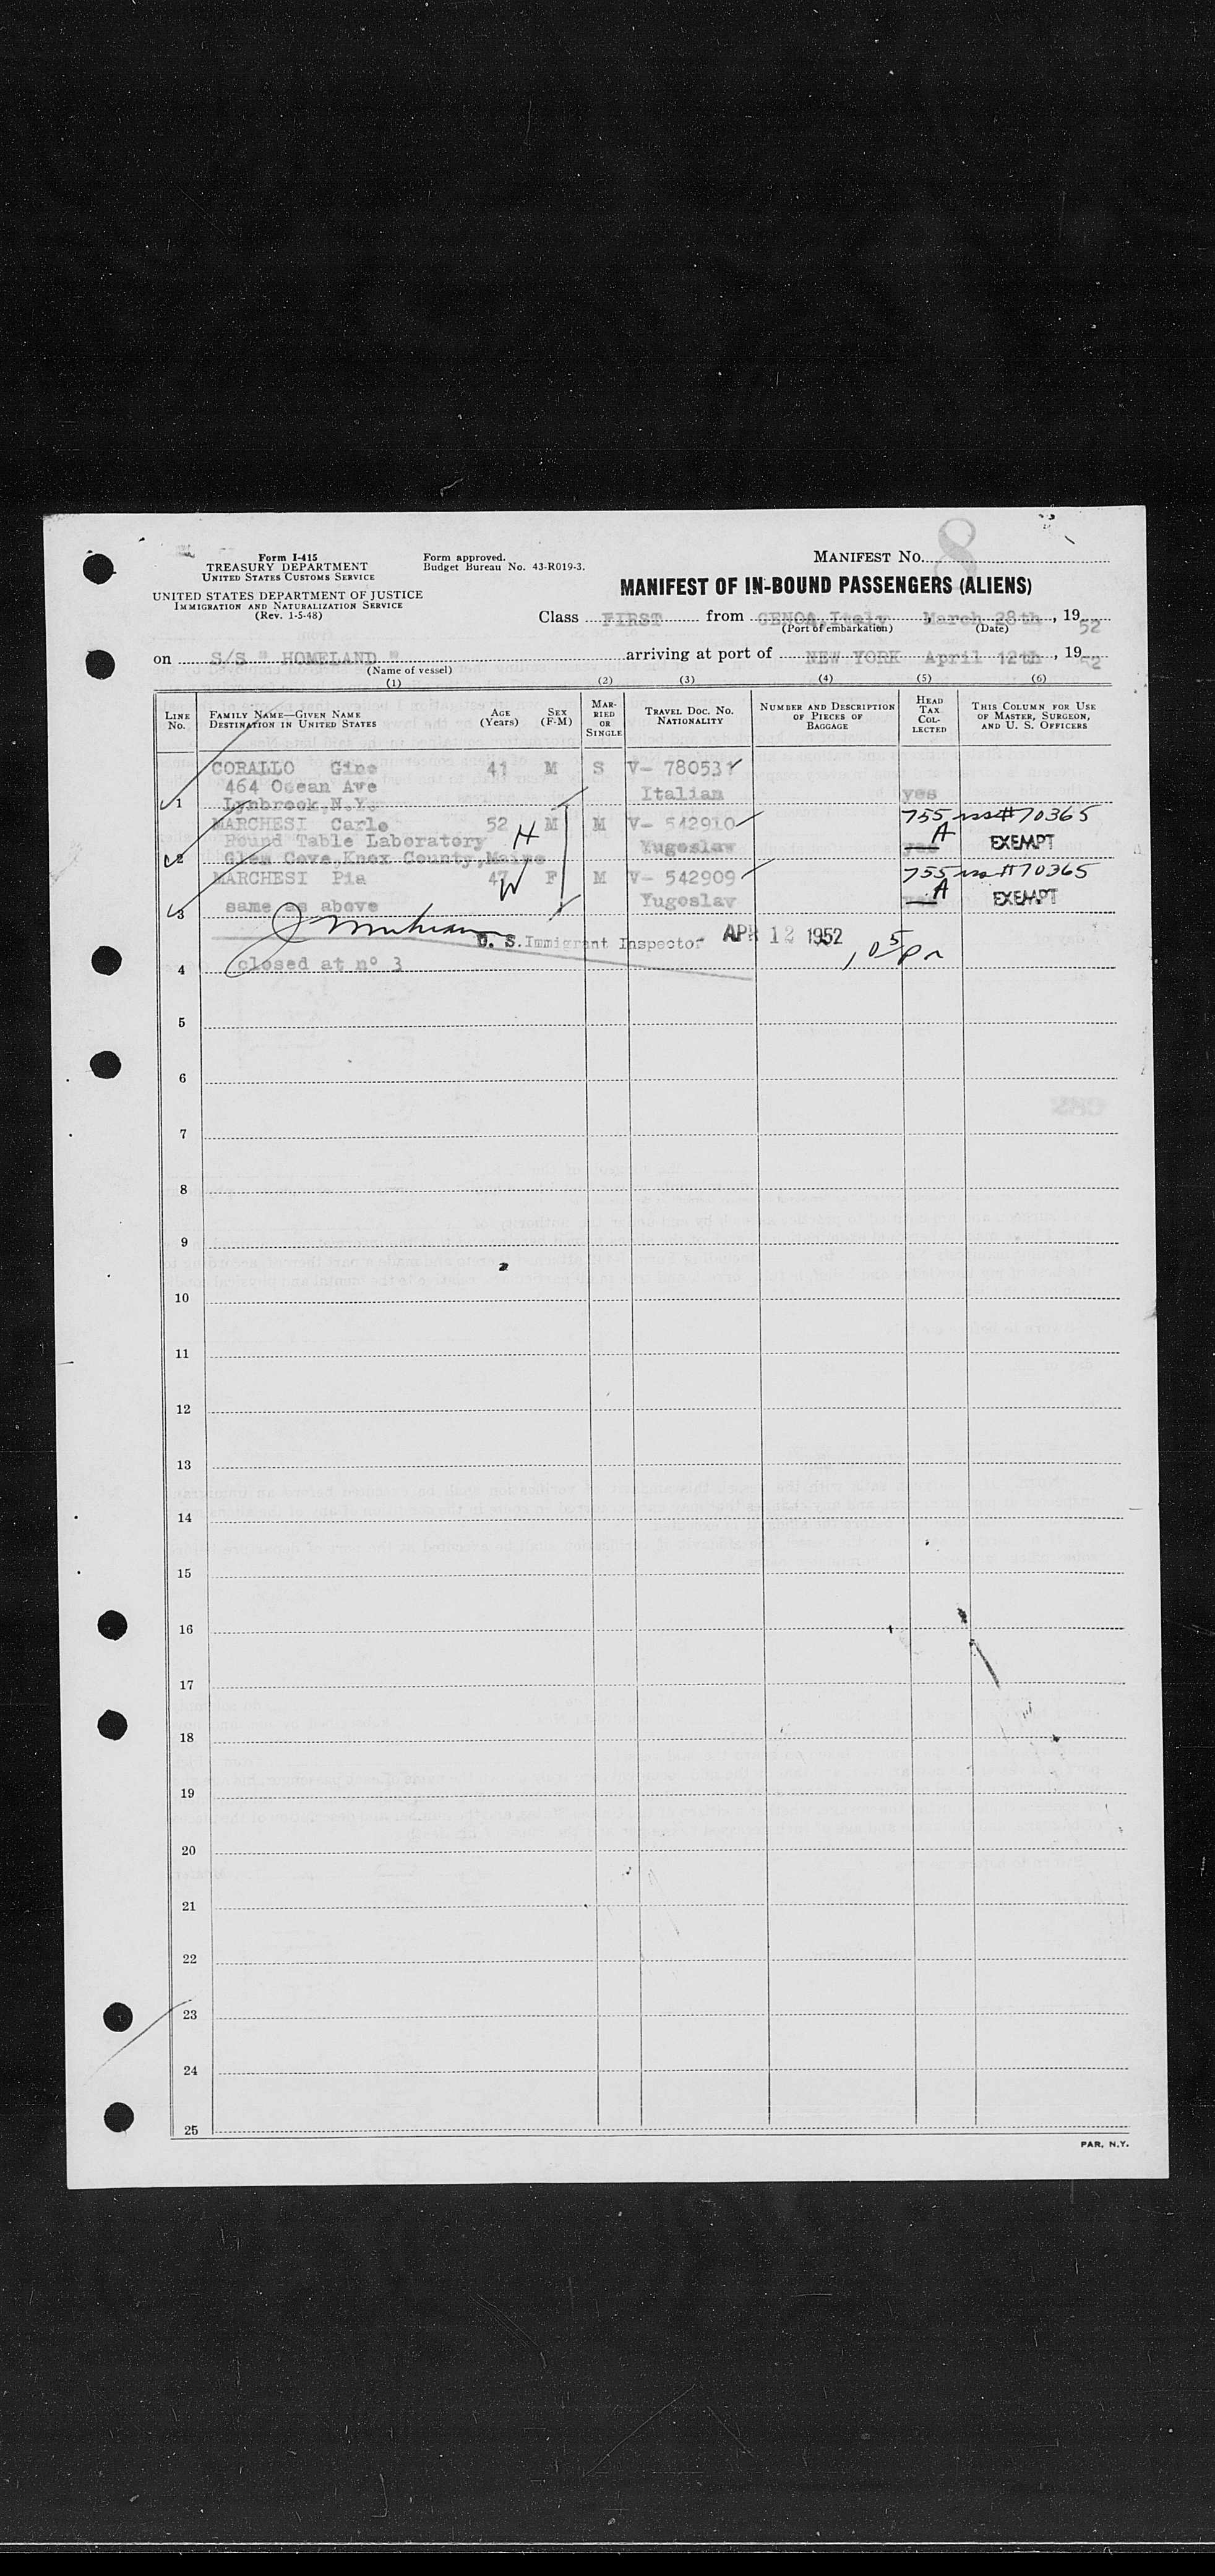 8
Form I-415
TREASURY DEPARTMENT
UNITED STATES CUSTOMS SERVICE
UNITED STATES DEPARTMENT OF JUSTICE
IMMIGRATION AND NATURALIZATION SERVICE
(Rev. 1-5-48)
Form approved.
Budget Bureau No. 43-R019-3.
MANIFEST NO.
MANIFEST OF IN-BOUND PASSENGERS (ALIENS)
Class FIRST from GENOA, Italy , March 28th , 19 52
(Port of embarkation) (Date)
on S/S " HOMELAND " arriving at port of NEW YORK April 12th , 19 52
(Name of vessel)
(1) (2) (3) (4) (5) (6)
LINE NO. FAMILY NAME—GIVEN NAME DESTINATION IN UNITED STATES AGE (Years) SEX (F-M) MARRIED OR SINGLE TRAVEL DOC. NO. NATIONALITY NUMBER AND DESCRIPTION OF PIECES OF BAGGAGE HEAD TAX COLLECTED THIS COLUMN FOR USE OF MASTER, SURGEON, AND U. S. OFFICERS
CORALLO Gino 41 M S V- 780531
464 Ocean Ave Italian yes
1 Lynbrook,N.Y.
MARCHESI Carlo 52 H M M V- 542910 755 #70365
Round Table Laboratory Yugoslav yes A EXEMPT
2 Glen Cove,Knox County,Maine
MARCHESI Pia 47 W F M V- 542909 755 #70365
same as above Yugoslav A EXEMPT
3
U. S. Immigrant Inspector APR 12 1952
closed at nº 3
4
5
6
7
8
9
10
11
12
13
14
15
16
17
18
19
20
21
22
23
24
25
PAR. N.Y.